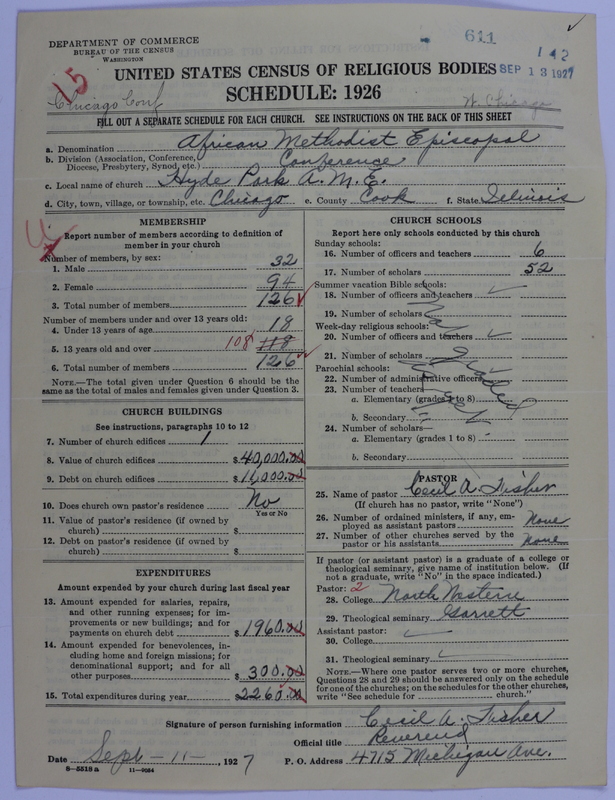 DEPARTMENT OF COMMERCE
BUREAU OF THE CENSUS
WASHINGTON
611
142
SEP 13 1927
15
Chicago Conf
W. Chicago
UNITED STATES CENSUS OF RELIGIOUS BODIES
SCHEDULE: 1926
FILL OUT A SEPARATE SCHEDULE FOR EACH CHURCH. SEE INSTRUCTIONS ON THE BACK OF THIS SHEET
a. Denomination African Methodist Episcopal
b. Division (Association, Conference, Diocese, Presbytery, Synod, etc.) Conference
c. Local name of church Hyde Park A.M.E.
d. City, town, village, or township, etc. Chicago e. County Cook f. State Illinois
MEMBERSHIP
Report number of members according to definition of
member in your church
Number of members, by sex:
1. Male 32
2. Female 94
3. Total number of members 126
Number of members under and over 13 years old:
4. Under 13 years of age 18
5. 13 years old and over 108 118
6. Total number of members 126
NOTE.—The total given under Question 6 should be the
same as the total of males and females given under Question 3.
CHURCH BUILDINGS
See instructions, paragraphs 10 to 12
7. Number of church edifices 1
8. Value of church edifices $40,000.00
9. Debt on church edifices $11,000.00
10. Does church own pastor's residence? No
Yes or No
11. Value of pastor's residence (if owned by
church) $
12. Debt on pastor's residence (if owned by
church) $
EXPENDITURES
Amount expended by your church during last fiscal year
13. Amount expended for salaries, repairs,
and other running expenses; for im-
provements or new buildings; and for
payments on church debt $1960.00
14. Amount expended for benevolences, in-
cluding home and foreign missions; for
denominational support; and for all
other purposes $300.00
15. Total expenditures during year $2260.00
CHURCH SCHOOLS
Report here only schools conducted by this church
Sunday schools:
16. Number of officers and teachers 6
17. Number of scholars 52
Summer vacation Bible schools:
18. Number of officers and teachers
19. Number of scholars
Week-day religious schools:
20. Number of officers and teachers
21. Number of scholars
Parochial schools:
22. Number of administrative officers
23. Number of teachers—
a. Elementary (grades 1 to 8)
b. Secondary
24. Number of scholars—
a. Elementary (grades 1 to 8)
b. Secondary
PASTOR
25. Name of pastor Cecil A. Fisher
(If church has no pastor, write "None")
26. Number of ordained ministers, if any, em-
ployed as assistant pastors None
27. Number of other churches served by the
pastor or his assistants None
If pastor (or assistant pastor) is a graduate of a college or
theological seminary, give name of institution below. (If
not a graduate, write "No" in the space indicated.)
Pastor: 2
28. College North Western
29. Theological seminary Garrett
Assistant pastor:
30. College
31. Theological seminary
NOTE.—Where one pastor serves two or more churches,
Questions 28 and 29 should be answered only on the schedule
for one of the churches; on the schedules for the other churches,
write "See schedule for church."
Signature of person furnishing information Cecil A. Fisher
Official title Reverend
Date Sept-11-, 1927 P. O. Address 4715 Michigan Ave.
8-5518a 11-9054